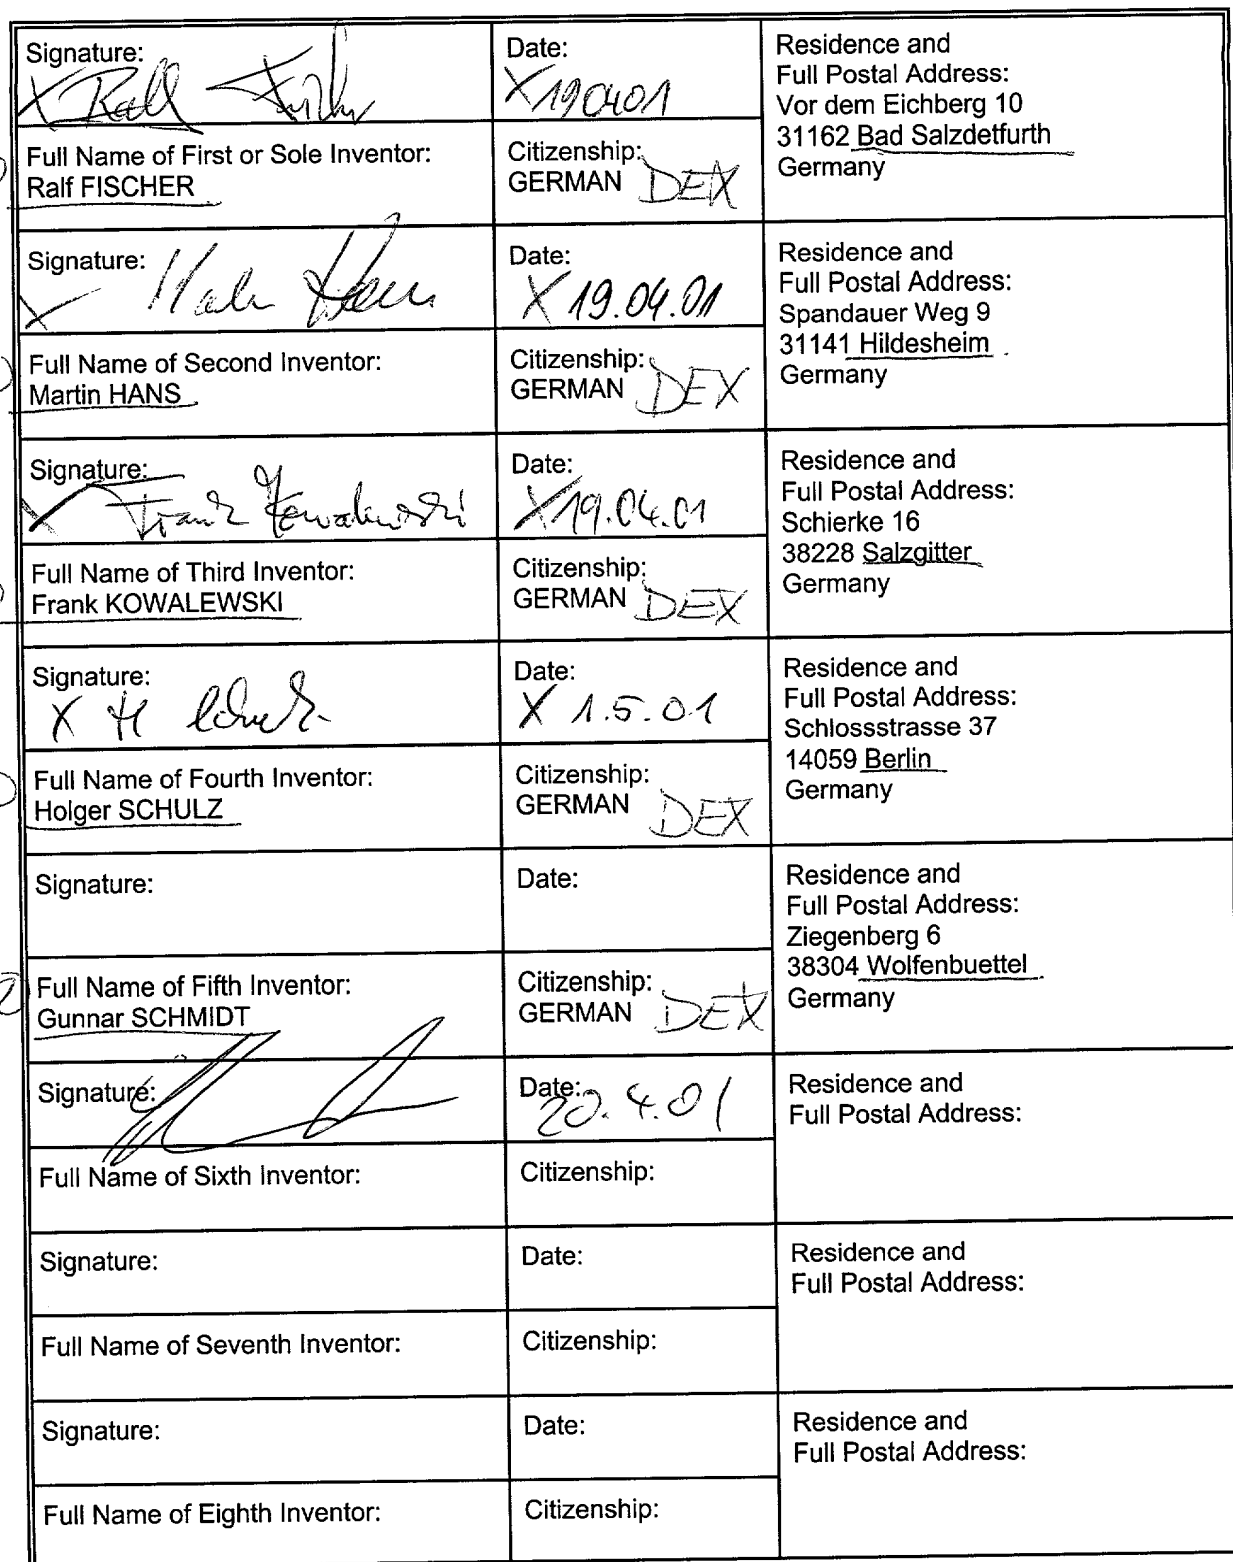 Signature:
X Ralf Fischer
Date:
X 190401
Residence and
Full Postal Address:
Vor dem Eichberg 10
31162 Bad Salzdetfurth
Germany
Full Name of First or Sole Inventor:
Ralf FISCHER
Citizenship:
GERMAN DEX
Signature:
X Martin Hans
Date:
X 19.04.01
Residence and
Full Postal Address:
Spandauer Weg 9
31141 Hildesheim
Germany
Full Name of Second Inventor:
Martin HANS
Citizenship:
GERMAN DEX
Signature:
X Frank Kowalewski
Date:
X 19.04.01
Residence and
Full Postal Address:
Schierke 16
38228 Salzgitter
Germany
Full Name of Third Inventor:
Frank KOWALEWSKI
Citizenship:
GERMAN DEX
Signature:
X H Schulz
Date:
X 1.5.01
Residence and
Full Postal Address:
Schlossstrasse 37
14059 Berlin
Germany
Full Name of Fourth Inventor:
Holger SCHULZ
Citizenship:
GERMAN DEX
Signature:
Date:
Residence and
Full Postal Address:
Ziegenberg 6
38304 Wolfenbuettel
Germany
Full Name of Fifth Inventor:
Gunnar SCHMIDT
Citizenship:
GERMAN DEX
Signature:
Date:
20.4.01
Residence and
Full Postal Address:
Full Name of Sixth Inventor:
Citizenship:
Signature:
Date:
Residence and
Full Postal Address:
Full Name of Seventh Inventor:
Citizenship:
Signature:
Date:
Residence and
Full Postal Address:
Full Name of Eighth Inventor:
Citizenship: